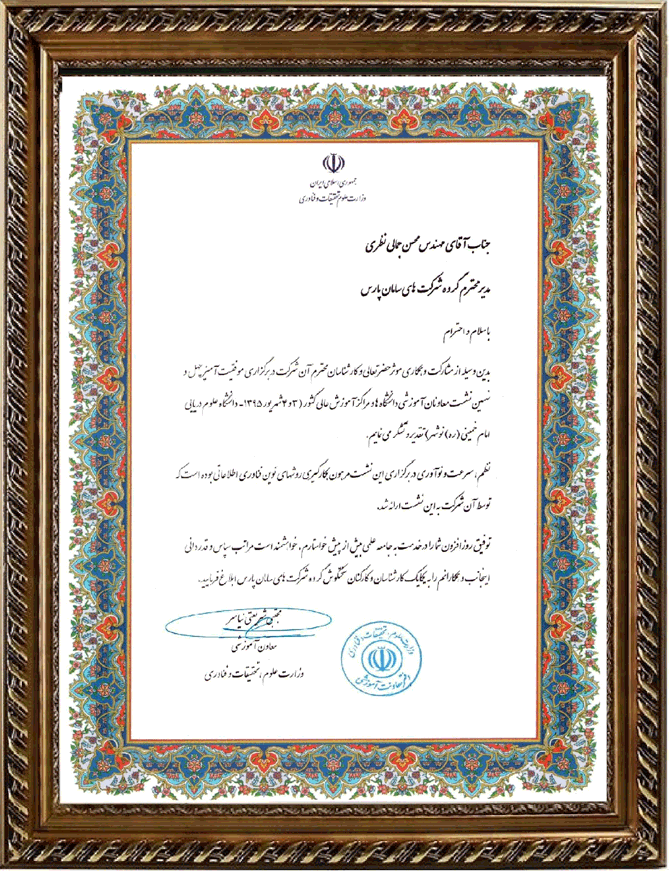 جمهوری اسلامی ایران
وزارت علوم تحقیقات و فناوری
جناب آقای مهندس محسن جمالی نظری
مدیر محترم گروه شرکت های سامان پارس
باسلام و احترام
بدین وسیله از مشارکت و همکاری موثر حضرتعالی و کارشناسان محترم آن شرکت در برگزاری موفقیت آمیز چهل و
نهمین نشست معاونان آموزشی دانشگاه ها و مراکز آموزش عالی کشور (۳ و ۴ شهریور ۱۳۹۵- دانشگاه علوم دریایی
امام خمینی (ره) نوشهر) تقدیر و تشکر می نمایم.
نظم، سرعت و نوآوری در برگزاری این نشست مرهون بکارگیری روشهای نوین فناوری اطلاعاتی بوده است که
توسط آن شرکت به این نشست ارائه شد.
توفیق روز افزون شما را در خدمت به جامعه علمی بیش از پیش خواستارم، خواهشمند است مراتب سپاس و قدردانی
اینجانب و همکارانم را به یکایک کارشناسان و کارکنان سختکوش گروه شرکت های سامان پارس ابلاغ فرمایید.
مجتبی شریعتی نیاسر
معاون آموزشی
وزارت علوم، تحقیقات و فناوری
وزارت علوم، تحقیقات و فناوری
دفتر معاونت آموزشی